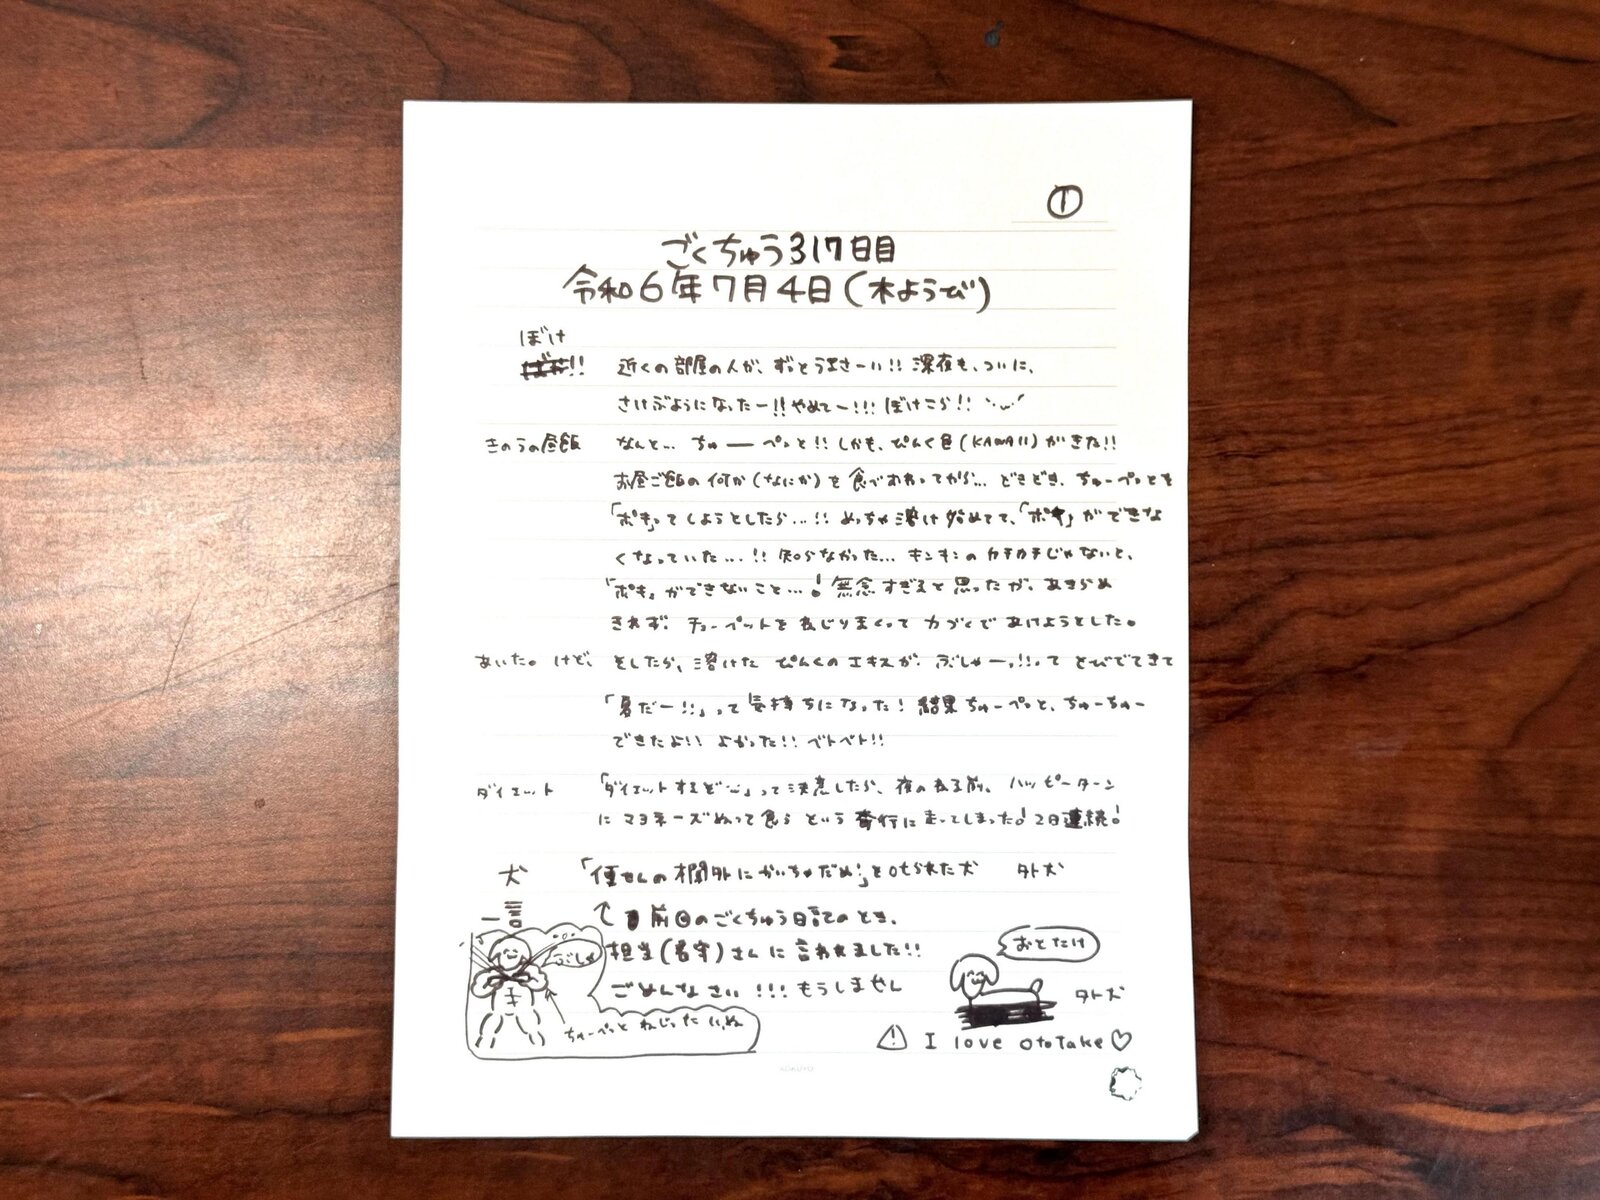 ①
ごくちゅう317日目
令和6年7月4日(木ようび)
ぼけ
!! 近くの部屋の人が、ずっとうまさーい!! 深夜も、ついに、
さけぶようになったー!! やめてー!!! ぼけこら!!
きのうの昼飯 なんと... ちゅーーペっと!! しかも、ぴんく色(KAWAII)がきた!!
お昼ご飯の何か(なにか)を食べおわってから... どきどき、ちゅーぺっとを
「ポキ」ってしようとしたら...!! めっちゃ溶け始めてて、「ポキ」ができな
くなっていた...!! 知らなかった... キンキンのカチカチじゃないと、
「ポキ」ができないこと...! 無念すぎると思ったが、あきらめ
きれず、チューペットをねじりまくって力づくであけようとした。
あいた。けど、 そしたら、溶けたぴんくのエキスが、ぶしゃーっ!!ってとびでてきて
「夏だー!!」って気持ちになった! 結果ちゅーぺっと、ちゅーちゅー
できたよ!! よかった!! ベトベト!!
ダイエット 「ダイエットするぞ」って決意したら、夜のねる前、ハッピーターン
にマヨネーズぬって食うという奇行に走ってしまった! 2日連続!
犬 「便せんの欄外にかいちゃだめ!」と叱られた犬 外犬
一言 ↑ 前回のごくちゅう日記のとき、
担当(看守)さんに言われました!!
ごめんなさい!!! もうしません
ぶしゃ
ちゅーぺっとねじったいぬ
おとたけ
外犬
I love ototake♡
KOKUYO